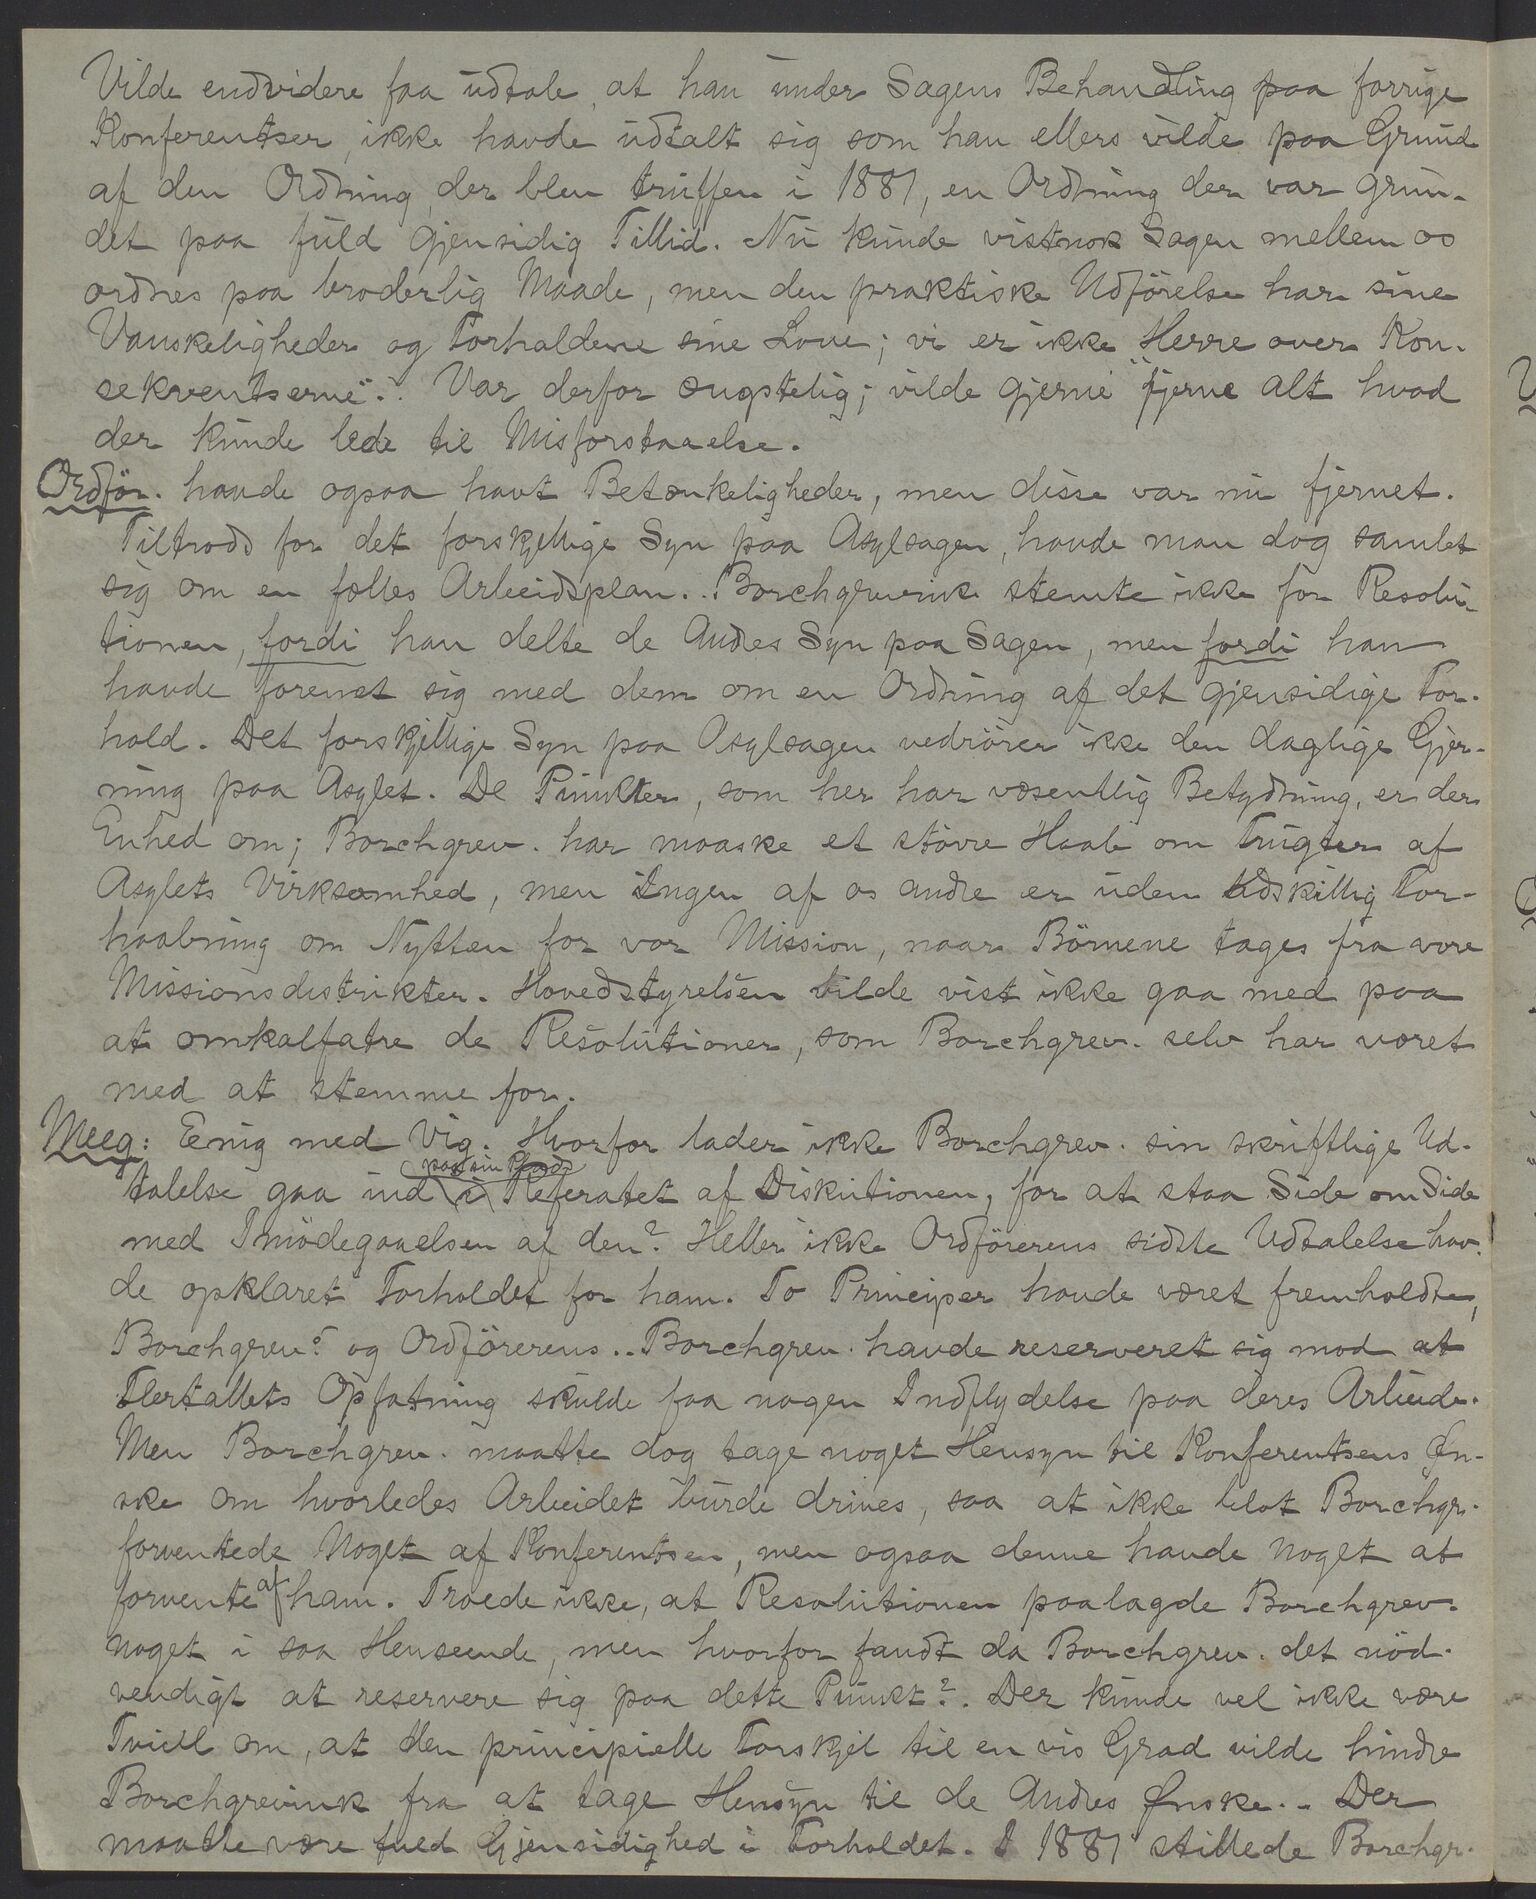 Vilde endvidere faa udtale, at han under Sagens Behandling paa forrige
Konferentser, ikke havde udtalt sig som han ellers vilde paa Grund
af den Ordning, der blev truffen i 1881, en Ordning der var grun-
det paa fuld gjensidig Tillid. Nu kunde vistnok Sagen mellem os
ordnes paa broderlig Maade, men den praktiske Udförelse har sine
Vanskeligheder og Forholdene sine Love; vi er ikke "Herre over Kon-
sekventserne". Var derfor ængstelig; vilde gjerne fjerne alt hvad
der kunde lede til Misforstaaelse.
Ordför. havde ogsaa havt Betænkeligheder, men disse var nu fjernet.
Tiltrods for det forskjellige Syn paa Asylsagen, havde man dog samlet
sig om en fælles Arbeidsplan.. Borchgrevink stemte ikke for Resolu-
tionen, fordi han delte de Andres Syn paa Sagen, men fordi han
havde forenet sig med dem om en Ordning af det gjensidige For-
hold. Det forskjellige Syn paa Asylsagen vedrörer ikke den daglige Gjer-
ning paa Asylet. De Punkter, som her har væsentlig Betydning, er der
Enhed om; Borchgrev. har maaske et större Haab om Frugter af
Asylets Virksomhed, men Ingen af os andre er uden Udskillig For-
haabning om Nytten for vor Mission, naar Börnene tages fra vore
Missionsdistrikter. Hovedstyrelsen vilde vist ikke gaa med paa
at omkalfatre de Resolutioner, som Borchgrev. selv har været
med at stemme for.
Meeg: Enig med Vig. Hvorfor lader ikke Borchgrev. sin skriftlige Ud-
paa sin Plads
talelse gaa ind i Referatet af Diskutionen, for at staa Side om Side
med Imödegaaelsen af den? Heller ikke Ordförerens sidste Udtalelse hav-
de opklaret Forholdet for ham. To Principer havde været fremholdte,
Borchgrev.s og Ordförerens.. Borchgrev. havde reserveret sig mod at
Flertallets Opfatning skulde faa nogen Indflydelse paa deres Arbeide.
Men Borchgrev. maatte dog tage noget Hensyn til Konferentsens Øn-
ske om hvorledes Arbeidet burde drives, saa at ikke blot Borchgr.
forventede Noget af Konferentsen, men ogsaa denne havde Noget at
forvente af ham. Troede ikke, at Resolutionen paalagde Borchgrev.
Noget i saa Henseende, men hvorfor fandt da Borchgrev. det nöd-
vendigt at reservere sig paa dette Punkt?. Der kunde vel ikke være
Tvivl om, at den principielle Forskjel til en vis Grad vilde hindre
Borchgrevink fra at tage Hensyn til de Andres Ønske.. Der
maatte være fuld Gjensidighed i Forholdet. I 1881 stillede Borchgr.